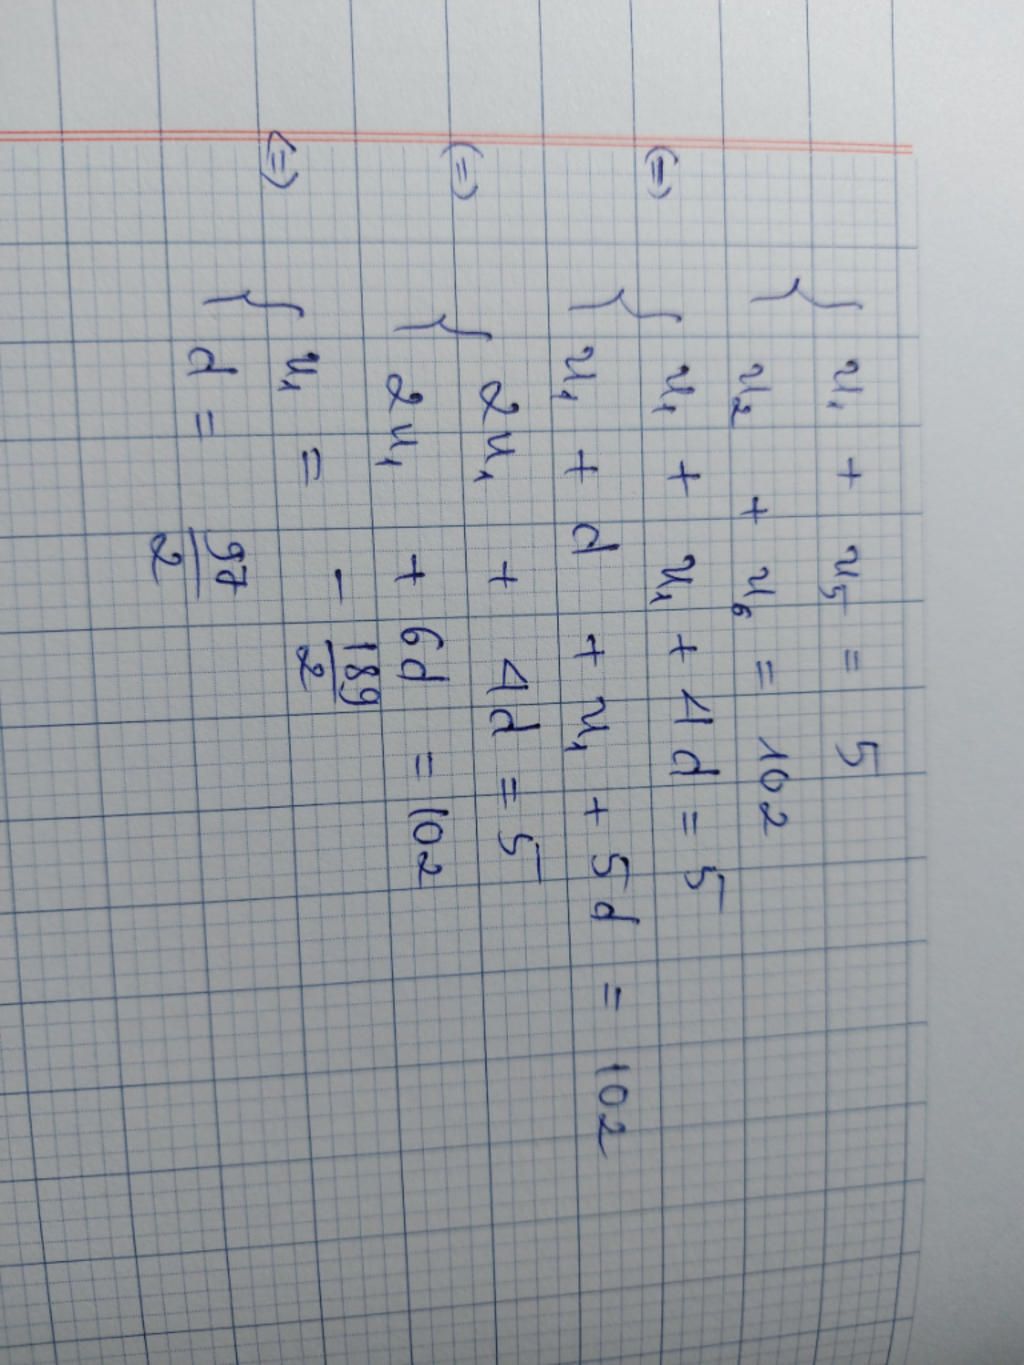 { u₁ + u₅ = 5
u₂ + u₆ = 102
(=) { u₁ + u₁ + 4d = 5
u₁ + d + u₁ + 5d = 102
(=) { 2u₁ + 4d = 5
2u₁ + 6d = 102
(=) { u₁ = - 189/2
d = 97/2